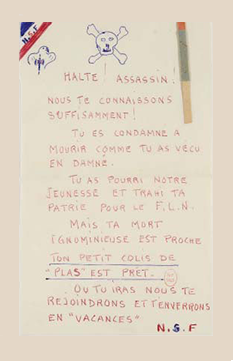 N.S.F
HALTE! ASSASSIN!
NOUS TE CONNAISSONS
SUFFISAMMENT!
TU ES CONDAMNE A
MOURIR COMME TU AS VECU
EN DAMNE.
TU AS POURRI NOTRE
JEUNESSE ET TRAHI TA
PATRIE POUR LE F.L.N.
MAIS TA MORT
IGNOMINIEUSE EST PROCHE
TON PETIT COLIS DE
"PLAS" EST PRET.
OU TU IRAS NOUS TE
REJOINDRONS ET T'ENVERRONS
EN "VACANCES"
N.S.F